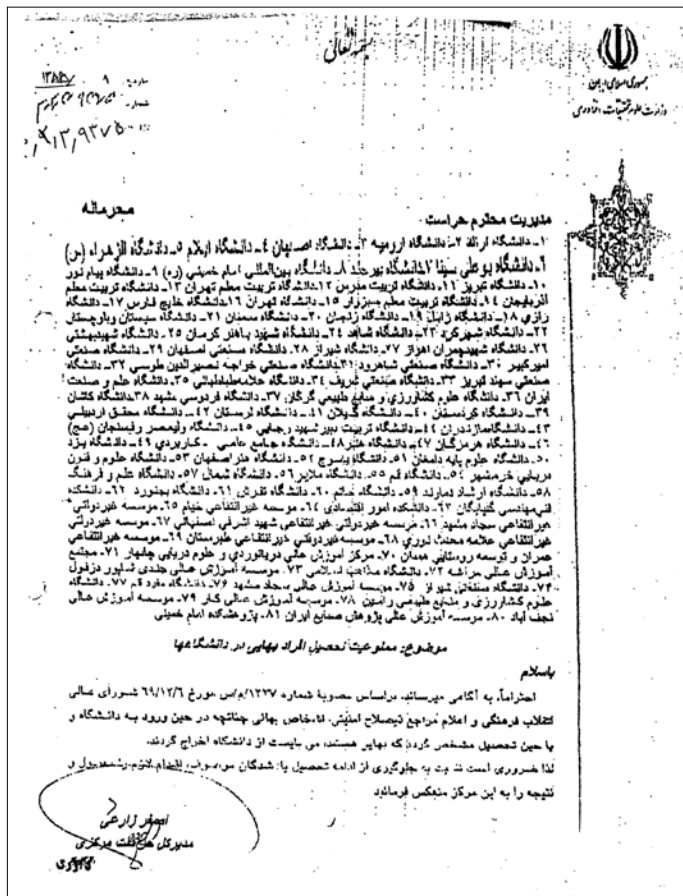 بسمه تعالی
جمهوری اسلامی ایران
وزارت علوم، تحقیقات و فناوری
تاریخ:
شماره:
محرمانه
مدیریت محترم حراست
۱ـ دانشگاه اراک ۲ـ دانشگاه ارومیه ۳ـ دانشگاه اصفهان ۴ـ دانشگاه ایلام ۵ـ دانشگاه الزهراء (س)
۶ـ دانشگاه بوعلی سینا ۷ـ دانشگاه بیرجند ۸ـ دانشگاه بین‌المللی امام خمینی (ره) ۹ـ دانشگاه پیام نور
۱۰ـ دانشگاه تبریز ۱۱ـ دانشگاه تربیت مدرس ۱۲ـ دانشگاه تربیت معلم تهران ۱۳ـ دانشگاه تربیت معلم
آذربایجان ۱۴ـ دانشگاه تربیت معلم سبزوار ۱۵ـ دانشگاه تهران ۱۶ـ دانشگاه خلیج فارس ۱۷ـ دانشگاه
رازی ۱۸ـ دانشگاه زابل ۱۹ـ دانشگاه زنجان ۲۰ـ دانشگاه سمنان ۲۱ـ دانشگاه سیستان وبلوچستان
۲۲ـ دانشگاه شهرکرد ۲۳ـ دانشگاه شاهد ۲۴ـ دانشگاه شهید باهنر کرمان ۲۵ـ دانشگاه شهیدبهشتی
۲۶ـ دانشگاه شهیدچمران اهواز ۲۷ـ دانشگاه شیراز ۲۸ـ دانشگاه صنعتی اصفهان ۲۹ـ دانشگاه صنعتی
امیرکبیر ۳۰ـ دانشگاه صنعتی شاهرود ۳۱ـ دانشگاه صنعتی خواجه نصیرالدین طوسی ۳۲ـ دانشگاه
صنعتی سهند تبریز ۳۳ـ دانشگاه صنعتی شریف ۳۴ـ دانشگاه علامه‌طباطبائی ۳۵ـ دانشگاه علم و صنعت
ایران ۳۶ـ دانشگاه علوم کشاورزی و منابع طبیعی گرگان ۳۷ـ دانشگاه فردوسی مشهد ۳۸ـ دانشگاه کاشان
۳۹ـ دانشگاه کردستان ۴۰ـ دانشگاه گیلان ۴۱ـ دانشگاه لرستان ۴۲ـ دانشگاه محقق اردبیلی
۴۳ـ دانشگاه مازندران ۴۴ـ دانشگاه تربیت دبیر شهید رجایی ۴۵ـ دانشگاه ولیعصر رفسنجان (عج)
۴۶ـ دانشگاه هرمزگان ۴۷ـ دانشگاه هنر ۴۸ـ دانشگاه جامع علمی ـ کاربردی ۴۹ـ دانشگاه یزد
۵۰ـ دانشگاه علوم پایه دامغان ۵۱ـ دانشگاه یاسوج ۵۲ـ دانشگاه هنر اصفهان ۵۳ـ دانشگاه علوم و فنون
دریایی خرمشهر ۵۴ـ دانشگاه قم ۵۵ـ دانشگاه ملایر ۵۶ـ دانشگاه شمال ۵۷ـ دانشگاه علم و فرهنگ
۵۸ـ دانشگاه ارشاد دماوند ۵۹ـ دانشگاه خاتم ۶۰ـ دانشگاه تفرش ۶۱ـ دانشگاه بجنورد ۶۲ـ دانشکده
فنی‌مهندسی گلپایگان ۶۳ـ دانشکده امور اقتصادی ۶۴ـ موسسه غیرانتفاعی خیام ۶۵ـ موسسه غیردولتی
غیرانتفاعی سجاد مشهد ۶۶ـ موسسه غیردولتی غیرانتفاعی شهید اشرفی اصفهانی ۶۷ـ موسسه غیردولتی
غیرانتفاعی علامه محدث نوری ۶۸ـ موسسه غیردولتی غیرانتفاعی طبرستان ۶۹ـ موسسه غیرانتفاعی
عمران و توسعه روستایی همدان ۷۰ـ مرکز آموزش عالی دریانوردی و علوم دریایی چابهار ۷۱ـ مجتمع
آموزش عالی مراغه ۷۲ـ دانشگاه مذاهب اسلامی ۷۳ـ موسسه آموزش عالی جندی شاپور دزفول
۷۴ـ دانشگاه صنعتی شیراز ۷۵ـ موسسه آموزش عالی سجاد مشهد ۷۶ـ دانشگاه مفید قم ۷۷ـ دانشگاه
علوم کشاورزی و منابع طبیعی رامین ۷۸ـ موسسه آموزش عالی کار ۷۹ـ موسسه آموزش عالی
نجف آباد ۸۰ـ موسسه آموزش عالی پژوهش صنایع ایران ۸۱ـ پژوهشکده امام خمینی
موضوع: ممنوعیت تحصیل افراد بهایی در دانشگاهها
باسلام
احتراماً، به آگاهی میرساند، براساس مصوبۀ شماره ۱۳۲۷/م/س مورخ ۶۹/۱۲/۶ شورای عالی
انقلاب فرهنگی و اعلام مراجع ذیصلاح امنیتی، اشخاص بهائی چنانچه در حین ورود به دانشگاه و
یا حین تحصیل مشخص گردد که بهایی هستند، می بایست از دانشگاه اخراج گردند.
لذا ضروری است نسبت به جلوگیری از ادامه تحصیل یاد شدگان موصوف، اقدام لازم و
نتیجه را به این مرکز منعکس فرمائید
اصغر زارعی
مدیرکل حراست مرکزی